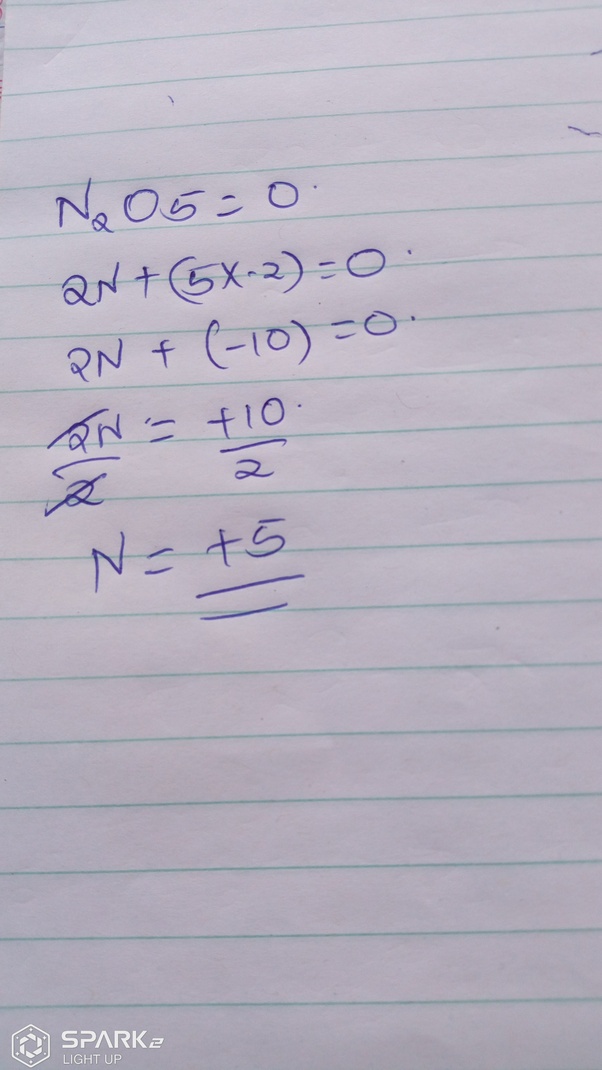 N₂O5 = 0.
2N + (5x-2) = 0.
2N + (-10) = 0.
2N = +10.
2 2
N = +5
SPARK 2
LIGHT UP